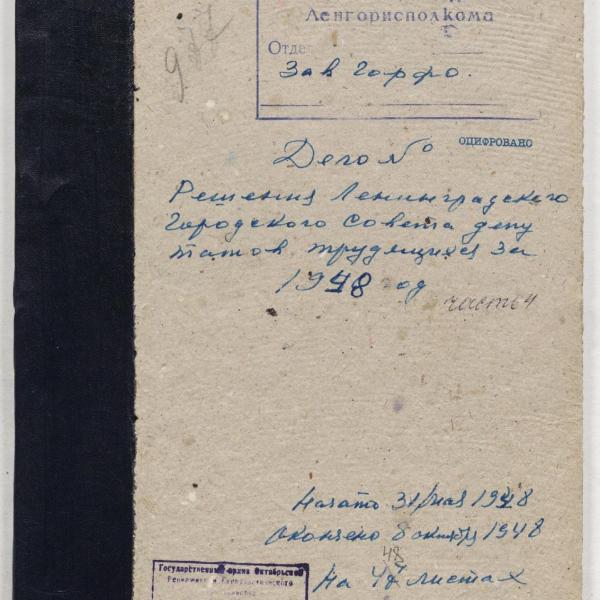 Ленгорисполкома
Отде
Зав Горфо.
ОЦИФРОВАНО
Дело №
Решения Ленинградского
Городского Совета депу
татов трудящихся за
1948 год
часть 4
Начато 31 мая 1948
Окончено 8 октября 1948
48
На 47 листах
Государственный архив Октябрьской
Революции и